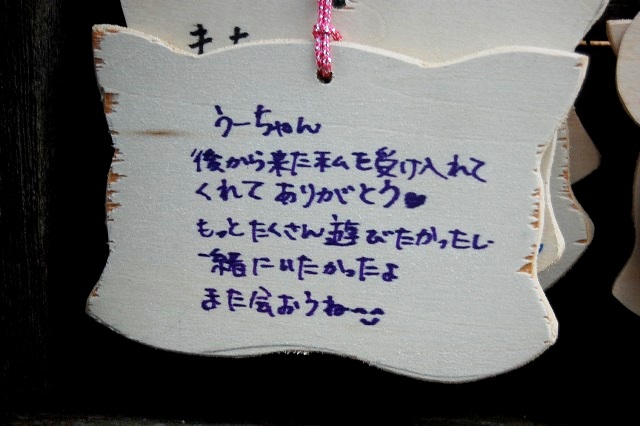 うーちゃん
後から来た私を受け入れて
くれてありがとう♥
もっとたくさん遊びたかったし
一緒にいたかったよ
また会おうね〜